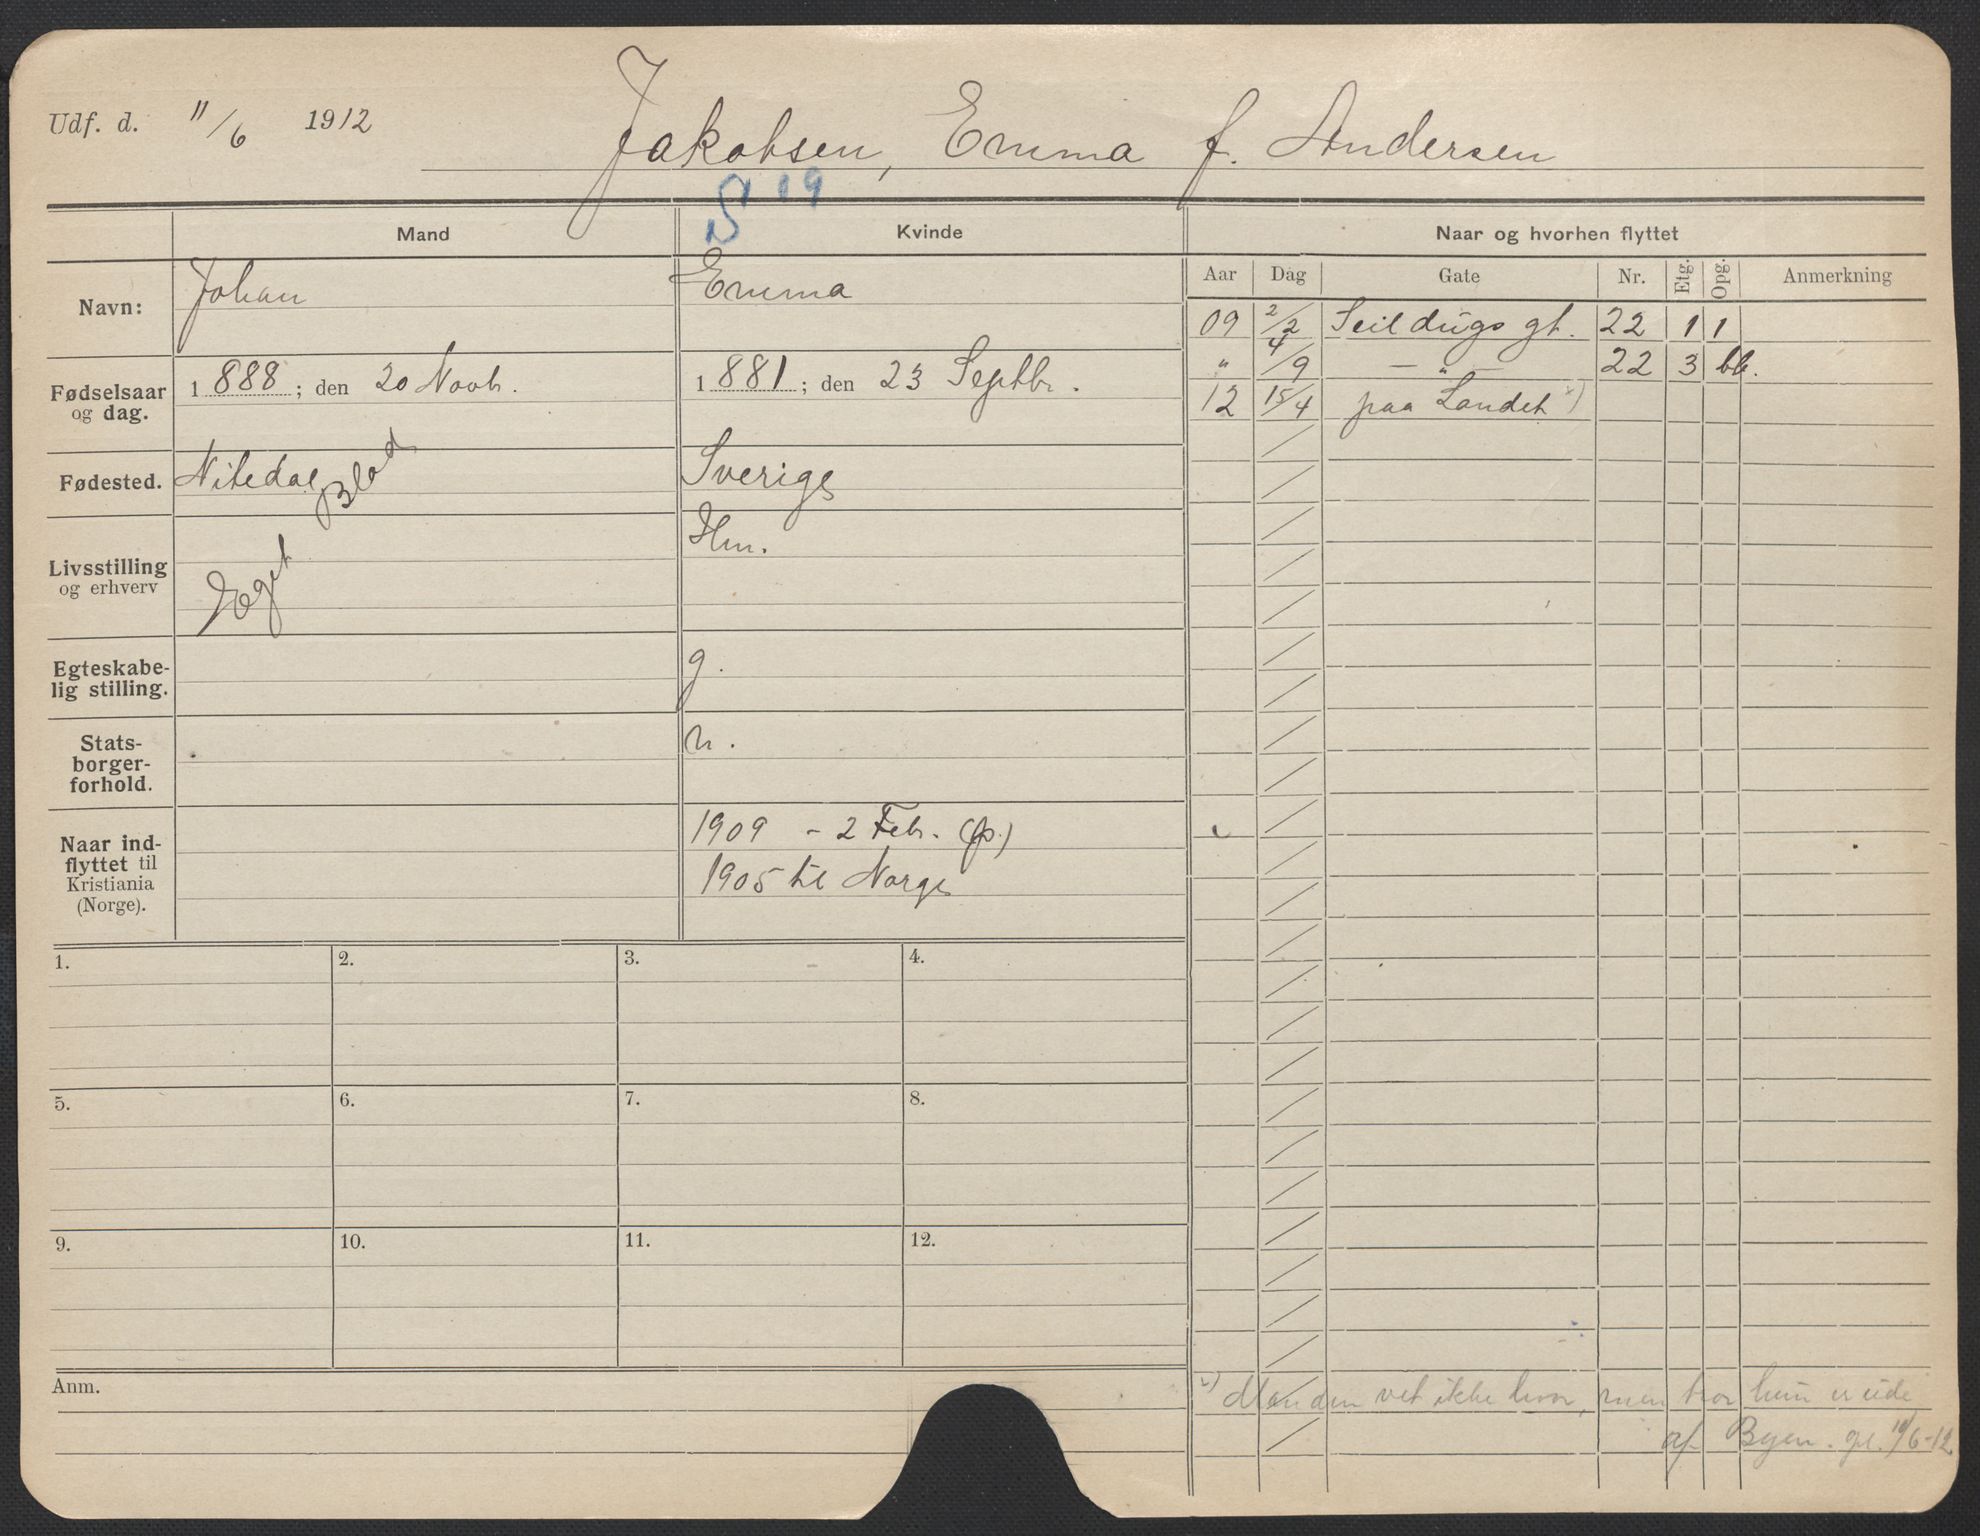 Udf. d. 11/6 1912
Jakobsen, Emma f. Andersen
S 19
Mand
Kvinde
Naar og hvorhen flyttet
Navn:
Johan
Emma
Aar Dag Gate Nr. Etg. Opg. Anmerkning
09 2/2 Seildugs gt. 22 1 1
" 4/9 — " — 22 3 bb.
12 15/4 paa Landet x)
Fødselsaar
og dag.
1888; den 20 Novb.
1881; den 23 Septbr.
Fødested.
Nitedal
Sverige
Eget Blad
Livsstilling
og erhverv
Hm.
Egteskabe-
lig stilling.
g.
Stats-
borger-
forhold.
n.
Naar ind-
flyttet til
Kristiania
(Norge).
1909 - 2 Feb. (fp.)
1905 til Norge
1. 2. 3. 4.
5. 6. 7. 8.
9. 10. 11. 12.
Anm.
x) Manden vet ikke hvor, men tror hun er ude
af Byen. 11/6-12